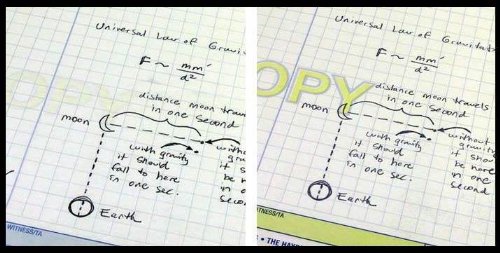 Universal Law of Gravi
F ~ mm'
d²
distance moon trav
in one second
moon
with gravity
it should
fall to here
in one sec.
Earth
WITNESS/TA
Universal Law of Gravitat
F ~ mm'
d²
OPY
distance moon travels
in one second
moon
with gravity
it should
fall to here
in one sec.
without
gravity
it shou
be here
in one
second
Earth
TNESS/TA
• THE HAY